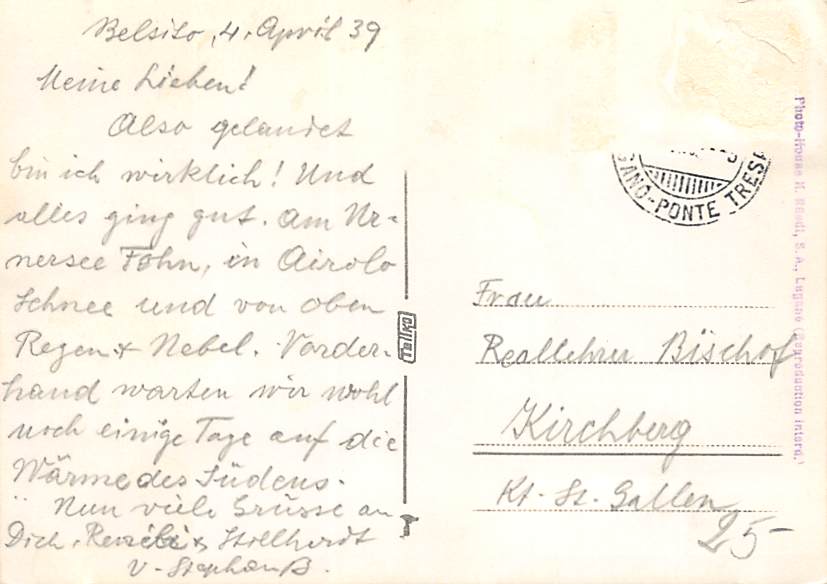 Belsito, 4. April 39
Meine Lieben!
Also gelandet
bin ich wirklich! Und
alles ging gut. Am Ur-
nersee Föhn, in Airolo
Schnee und von oben
Regen + Nebel. Vorder-
hand warten wir wohl
noch einige Tage auf die
Wärme des Südens.
Nun viele Grüsse an
Dich,
v. Stephan B.
Tellko
GANO-PONTE TRES
Frau
Reallehrer Bischof
Kirchberg
Kt. St. Gallen
25-
Photo-House S. A., Lugano (Reproduction interd.)